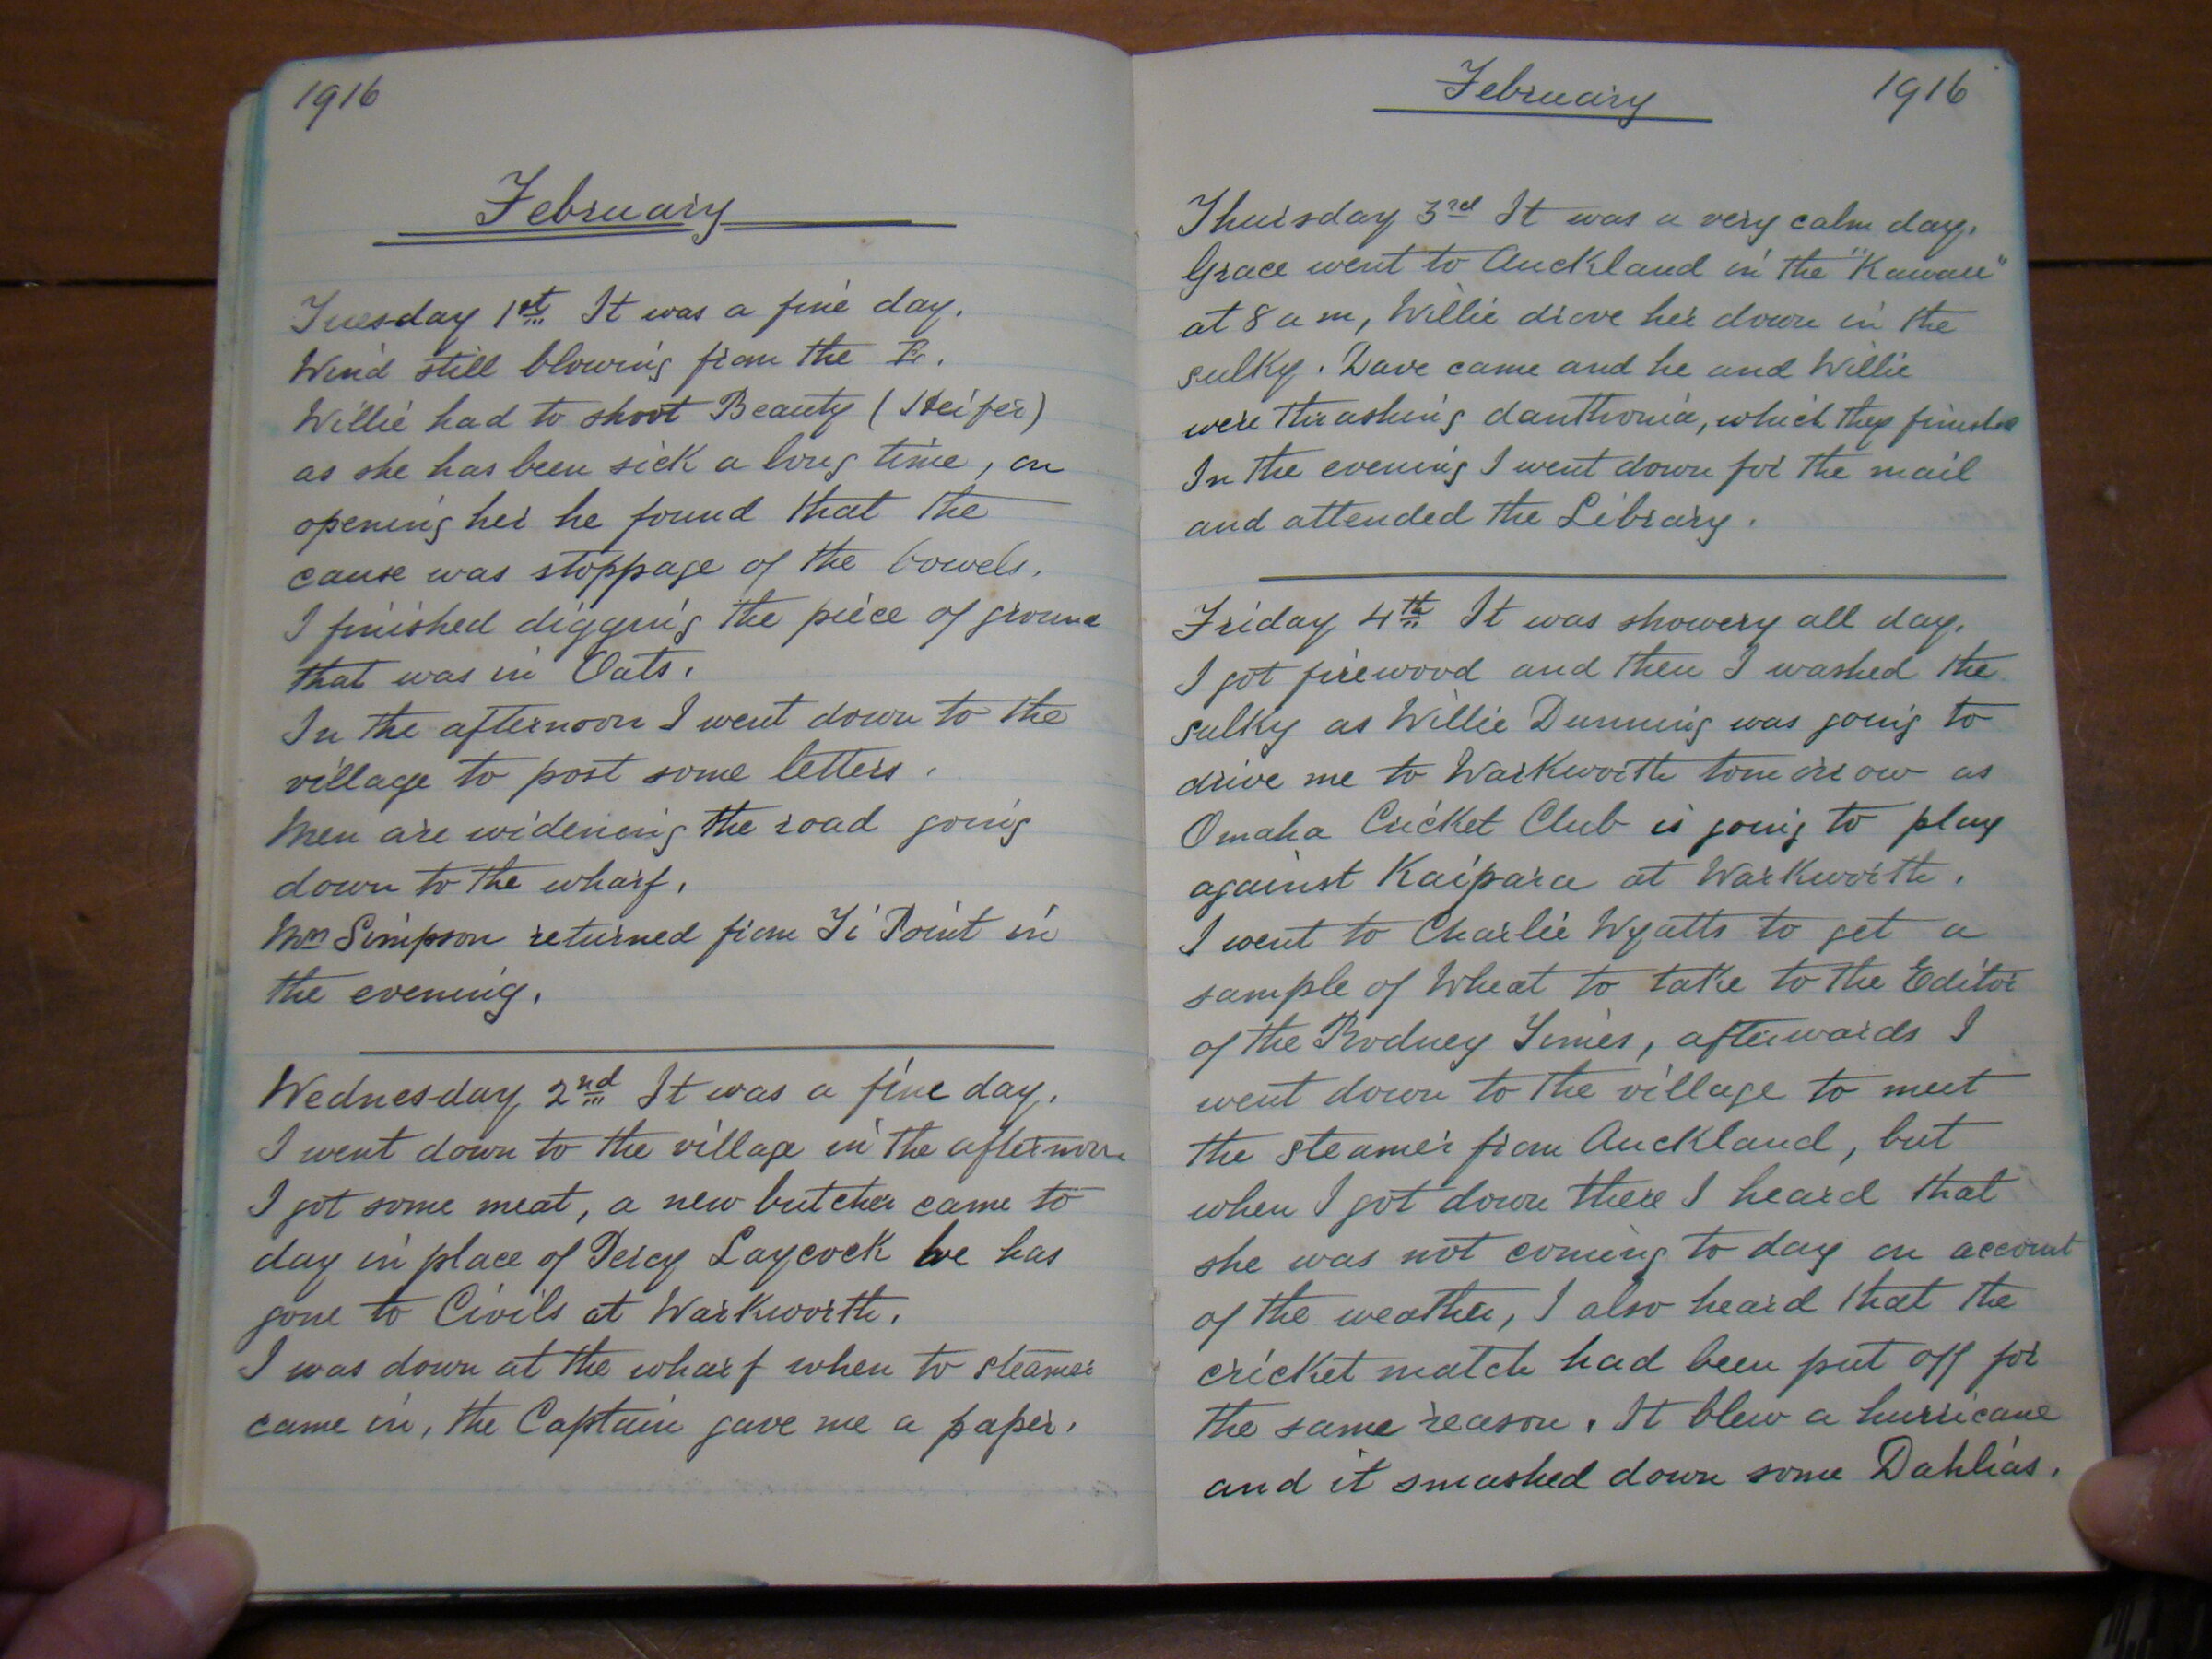 1916
February
Tuesday 1st It was a fine day.
Wind still blowing from the E.
Willie had to shoot Beauty (Heifer)
as she has been sick a long time, on
opening her he found that the
cause was stoppage of the bowels.
I finished digging the piece of ground
that was in Oats.
In the afternoon I went down to the
village to post some letters.
Men are widening the road going
down to the wharf.
Mrs Simpson returned from Ti Point in
the evening.
Wednesday 2nd It was a fine day.
I went down to the village in the afternoon
I got some meat, a new butcher came to
day in place of Percy Laycock he has
gone to Civils at Warkworth.
I was down at the wharf when to steamer
came in, the Captain gave me a paper.
February 1916
Thursday 3rd It was a very calm day.
Grace went to Auckland in the "Kawau"
at 8 a m, Willie drove her down in the
sulky. Dave came and he and Willie
were thrashing danthonia, which they finished
In the evening I went down for the mail
and attended the Library.
Friday 4th It was showery all day.
I got firewood and then I washed the
sulky as Willie Dunning was going to
drive me to Warkworth tomorrow as
Omaha Cricket Club is going to play
against Kaipara at Warkworth.
I went to Charlie Wyatts to get a
sample of Wheat to take to the Editor
of the Rodney Times, afterwards I
went down to the village to meet
the steamer from Auckland, but
when I got down there I heard that
she was not coming to day on account
of the weather, I also heard that the
cricket match had been put off for
the same reason. It blew a hurricane
and it smashed down some Dahlias.